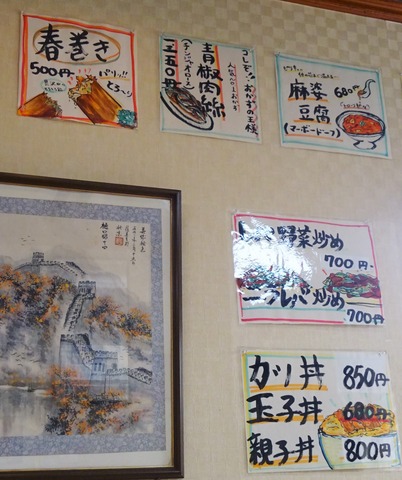 春巻き
500円
パリッ!!
とろ〜り
コレぞ!!おかずの王様
青椒肉絲
(チンジャオロース)
一二五〇円
麻婆 680円
豆腐
(マーボードーフ)
野菜炒め
700円
レバ炒め
700円
カツ丼 850円
玉子丼 680円
親子丼 800円